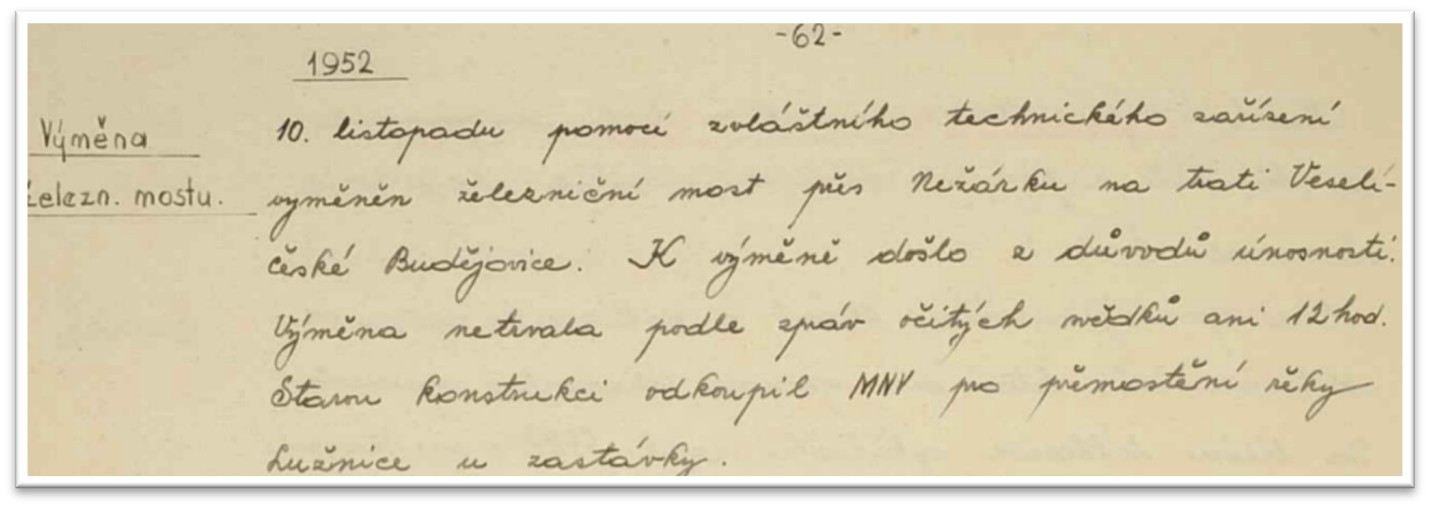 -62-
1952
Výměna
železn. mostu.
10. listopadu pomocí zvláštního technického zařízení
vyměněn železniční most přes Nežárku na trati Veselí-
České Budějovice. K výměně došlo z důvodů únosnosti.
Výměna netrvala podle zpráv očitých svědků ani 12 hod.
Starou konstrukci odkoupil MNV pro přemostění řeky
Lužnice u zastávky.